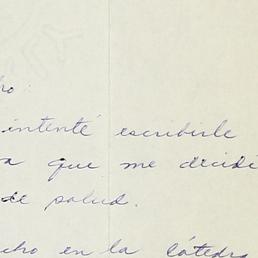 ho:
intenté escribirle
a que me decidí
de salud.
cho en la cátedra